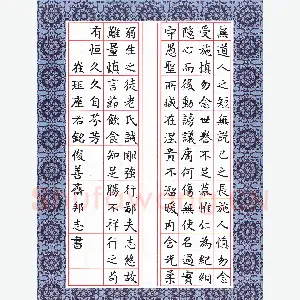 無道人之短無說己之長施人慎勿念
受施慎勿忘世譽不足慕惟仁為紀綱
隱心而後動謗議庸何傷無使名過實
守愚聖所臧在涅貴不淄曖內含光柔
弱生之徒老氏誡剛強行鄙夫志悠故
難量慎言節飲食知足勝不祥行之苟
有恒久久自芬芳
崔瑗座右銘 善森邦志書